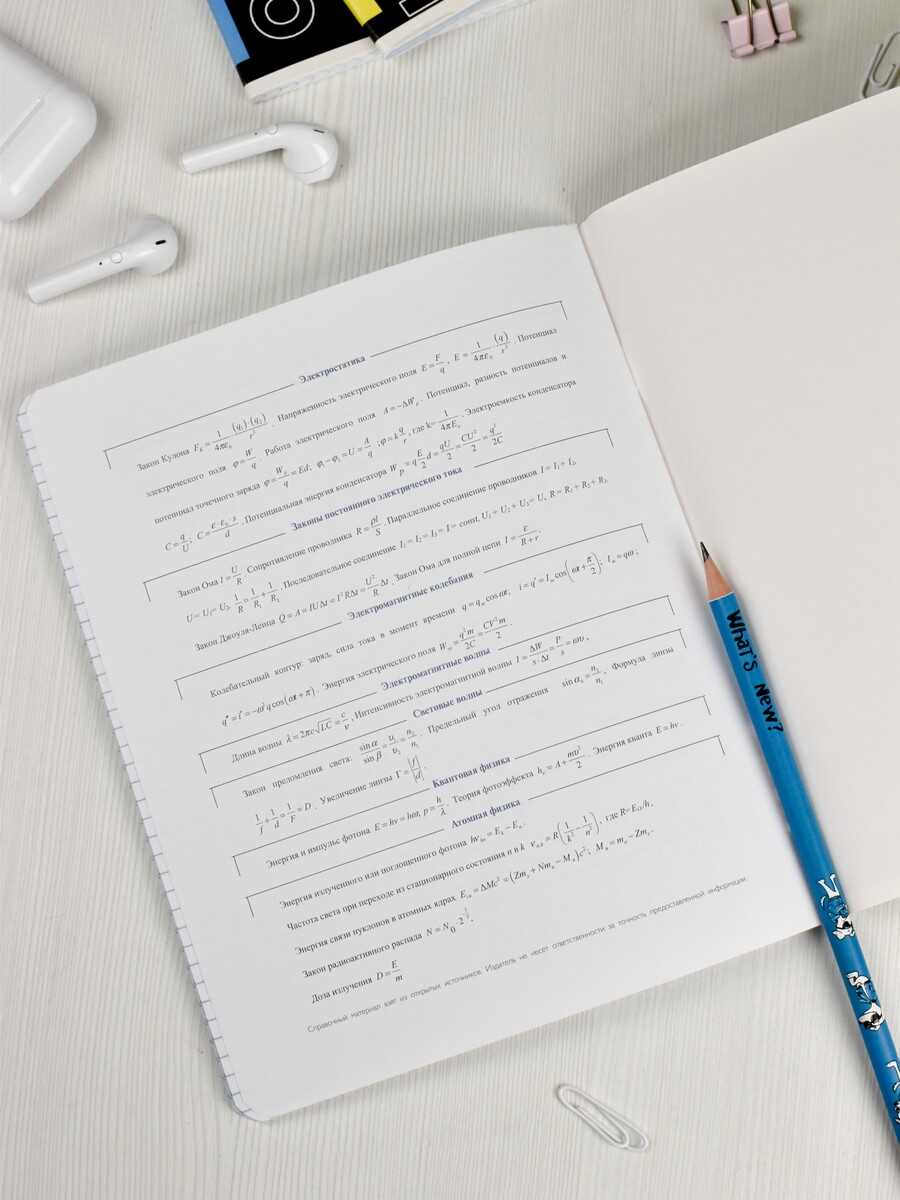 Электростатика
Закон Кулона F_k = 1/4πε₀ · (q₁)·(q₂)/r². Напряженность электрического поля E = F/q, E = 1/4πε₀ · (q)/r². Потенциал
электрического поля φ = W/q. Работа электрического поля A = −ΔWₑ. Потенциал, разность потенциалов и
потенциал точечного заряда φ = W_p/q = Ed; φ₁ − φ₂ = U = A/q; φ = k q/r, где k = 1/4πE₀. Электроемкость конденсатора
C = q/U; C = ε·ε₀·s/d. Потенциальная энергия конденсатора W_p = q E/2 d = qU/2 = CU²/2 = q²/2C
Законы постоянного электрического тока
Закон Ома I = U/R. Сопротивление проводника R = ρl/S. Параллельное соединение проводников I = I₁+ I₂,
U= U₁= U₂, 1/R = 1/R₁ + 1/R₂. Последовательное соединение I₁ = I₂ = I₃ = I = const, U₁ + U₂ + U₃= U, R = R₁ + R₂ + R₃.
Закон Джоуля-Ленца Q = A = IUΔt = I²RΔt = U²/R Δt. Закон Ома для полной цепи I = ε/R+r.
Электромагнитные колебания
Колебательный контур: заряд, сила тока в момент времени q = qₘ cos ωt; i = q' = Iₘ cos(ωt + π/2); Iₘ = qω;
q'' = i' = −ω² q cos(ωt + π). Энергия электрического поля Wₘ = q²m/2C = CV²m/2.
Электромагнитные волны
Длина волны λ = 2πc√LC = c/ν, Интенсивность электромагнитной волны I = ΔW/s·Δt = P/s = ωυ,
Световые волны
Закон преломления света: sin α/sin β = υ₁/υ₂ = n₂/n₁. Предельный угол отражения sin α₀ = n₂/n₁, Формула линзы
1/f + 1/d = 1/F = D. Увеличение линзы Γ = |f|/|d|.
Квантовая физика
Энергия и импульс фотона E = hν = hω, p = h/λ. Теория фотоэффекта hᵥ = A + mυ²/2. Энергия кванта E = hν.
Атомная физика
Энергия излученного или поглощенного фотона hνₖₙ = Eₖ − Eₙ.
Частота света при переходе из стационарного состояния n в k νₙ,ₖ = R(1/k² − 1/n²), где R=E₀/h.
Энергия связи нуклонов в атомных ядрах E_св = ΔMc² = (Zmₚ + Nmₙ − Mₐ)c²; Mₐ = mₐ − Zmₑ.
Закон радиоактивного распада N = N₀ · 2
Доза излучения D = E/m
Справочный материал взят из открытых источников. Издатель не несет ответственности за точность предоставленной информации.
What's New, Man?